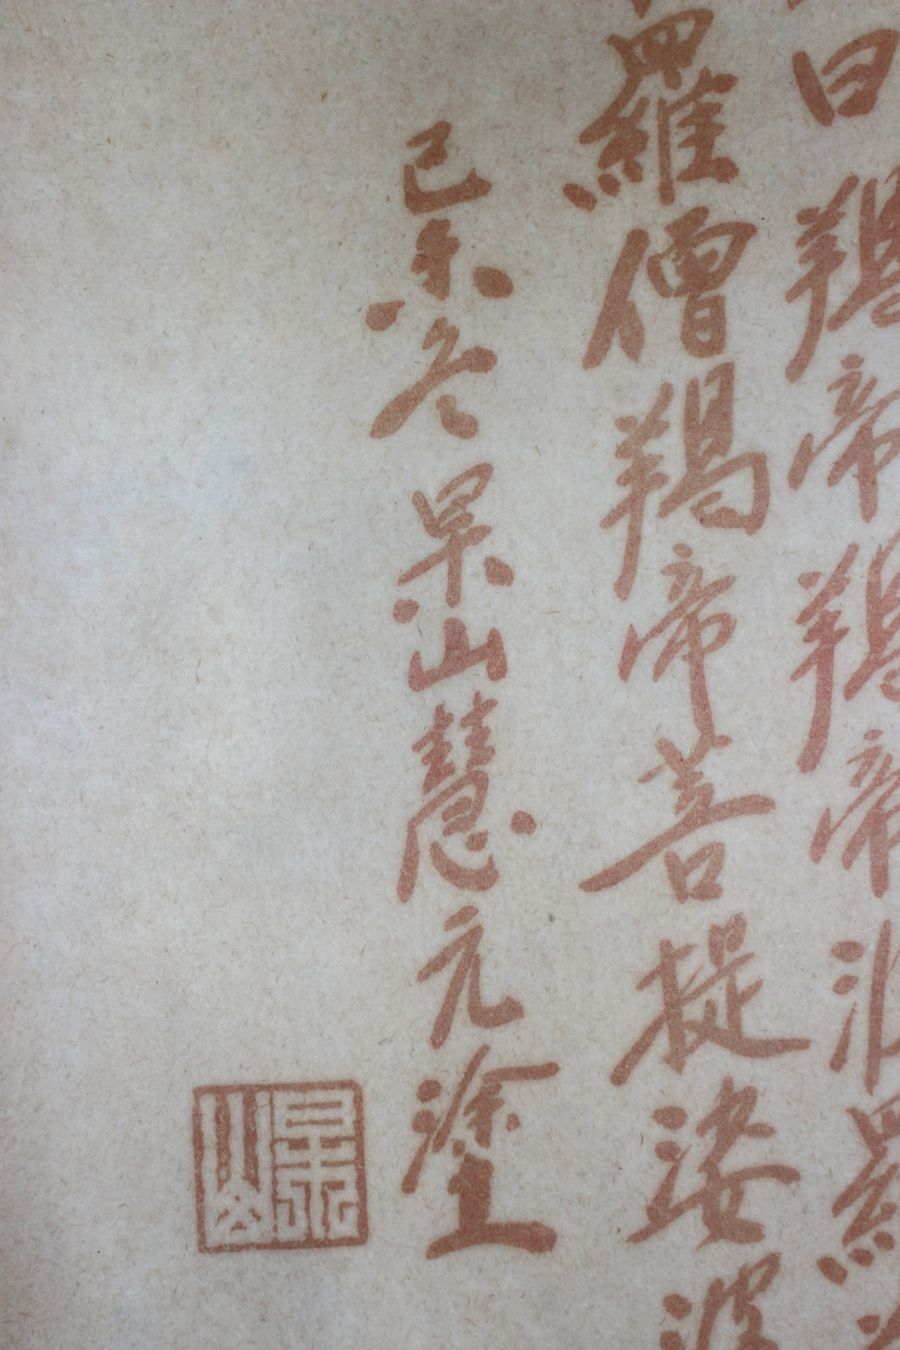 曰羯帝羯帝波羅
羅僧羯帝菩提娑
己未冬杲山慧元塗
杲山